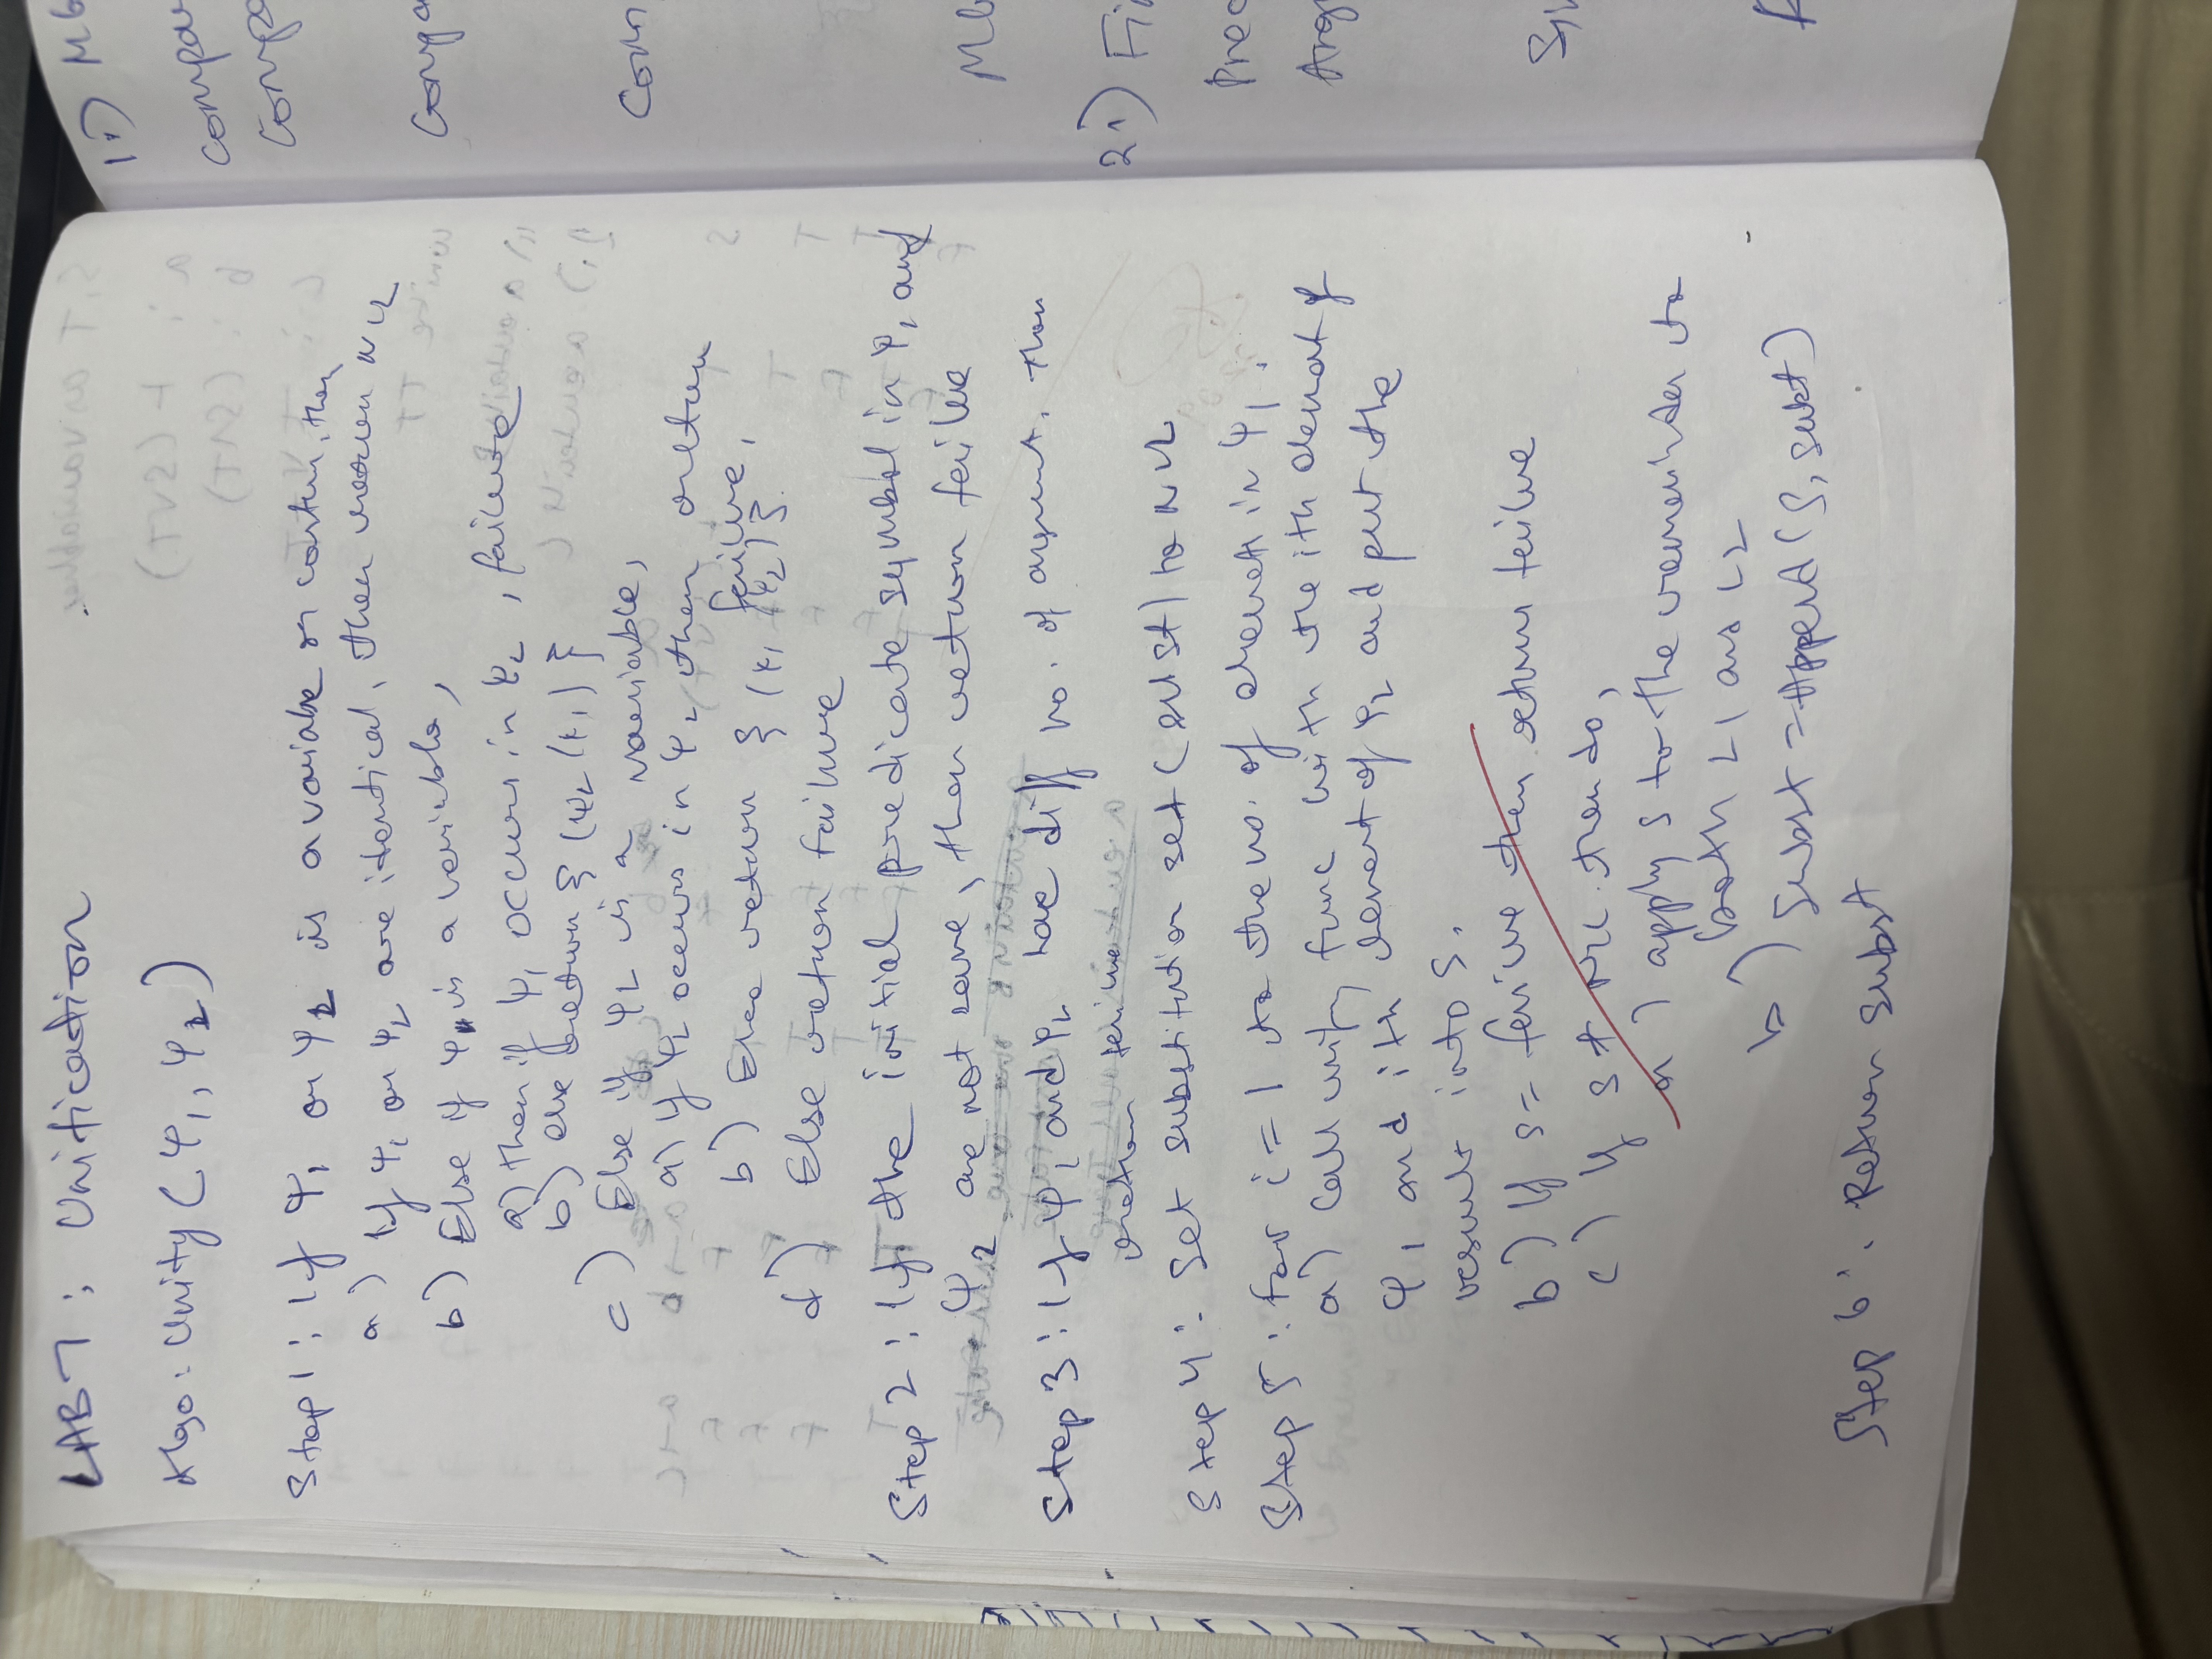 LAB 7 : Unification
Algo: Unity (Ψ1, Ψ2)
Step 1 : If Ψ1 or Ψ2 is a variable or then
a) If Ψ1 or Ψ2 are identical, then return NIL
b) Else if Ψ1 is a variable,
a) then if Ψ1 occurs in Ψ2 , failure
b) else return { (Ψ2 / Ψ1) }
c) Else if Ψ2 is a variable,
a) If Ψ2 occurs in Ψ2 then return
failure,
b) Else return { (Ψ1 / Ψ2) }.
d) Else return failure
Step 2 : If the initial predicate symbol in Ψ1 and
Ψ2 are not same, then return failure
Step 3 : If Ψ1 and Ψ2 have diff no. of argument, then
return failure
Step 4 : Set substitution set (subst) to NIL
Step 5 : for i = 1 to the no. of elements in Ψ1 .
a) Call unify func with the ith element of
Ψ1 and ith element of Ψ2 and put the
result into S.
b) If S = failure then return failure
c) If S ≠ NIL then do,
a) apply S to the remainder to
both L1 and L2
b) Subst = Append (S, subst)
Step 6 : Return subst
1.) MG
2.) Fi
Pred
Arg
MG